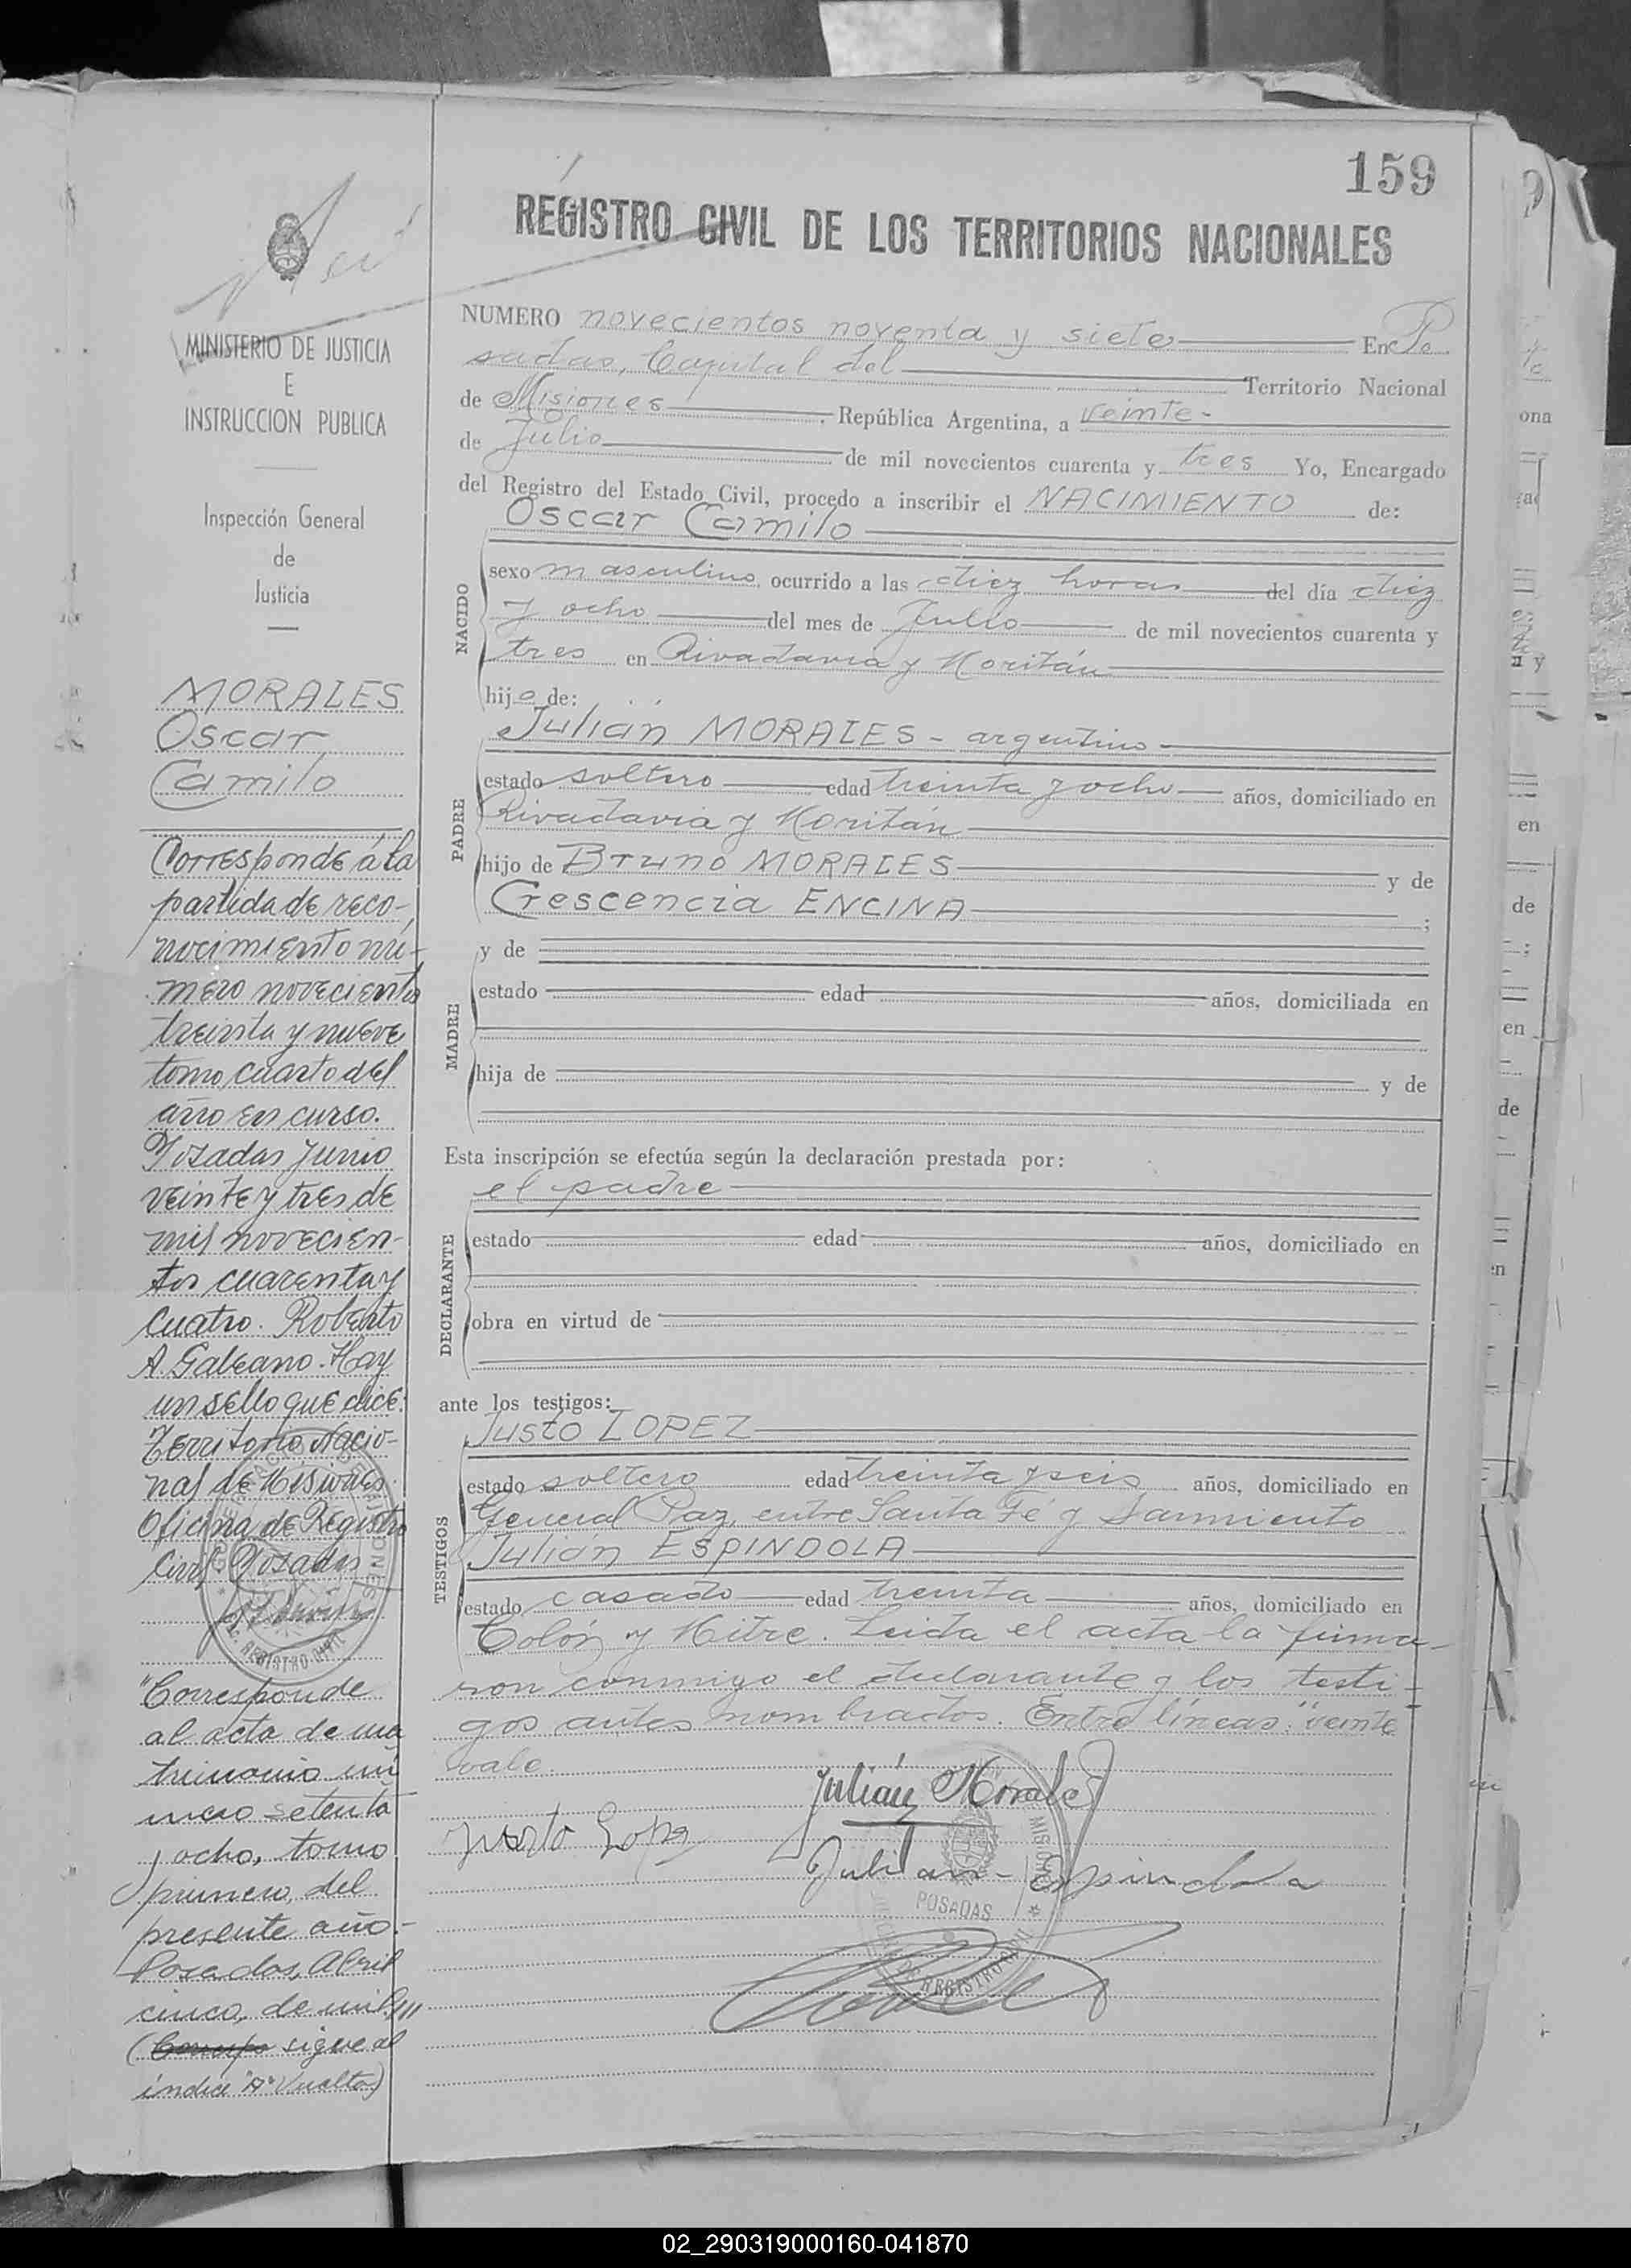 159
REGISTRO CIVIL DE LOS TERRITORIOS NACIONALES
MINISTERIO DE JUSTICIA
E
INSTRUCCION PUBLICA
Inspección General
de
Justicia
MORALES
Oscar
Camilo
Corresponde á la
partida de reco-
nocimiento nú-
mero novecientos
treinta y nueve
tomo cuarto del
año en curso.
Posadas Junio
veinte y tres de
mil novecien-
tos cuarenta y
cuatro. Roberto
A. Galeano. Hay
un sello que dice:
Territorio Nacio-
nal de Misiones
Oficina de Registro
Civil Posadas
"Corresponde
al acta de ma
trimonio nú
mero setenta
y ocho, tomo
primero, del
presente año.-
Posadas, Abril
cinco, de mil
( sigue al
indice "A" Vuelta)
NUMERO novecientos noventa y siete En Po
sadas, Capital del Territorio Nacional
de Misiones República Argentina, a veinte-
de Julio de mil novecientos cuarenta y tres Yo, Encargado
del Registro del Estado Civil, procedo a inscribir el NACIMIENTO de:
Oscar Camilo
NACIDO
sexo masculino ocurrido a las diez horas del día diez
y ocho del mes de Julio de mil novecientos cuarenta y
tres en Rivadavia y Moritán
hijo de:
Julián MORALES - argentino -
PADRE
estado soltero edad treinta y ocho años, domiciliado en
Rivadavia y Moritán
hijo de Bruno MORALES y de
Crescencia ENCINA ;
MADRE
y de
estado edad años, domiciliada en
hija de y de
Esta inscripción se efectúa según la declaración prestada por:
el padre
DECLARANTE
estado edad años, domiciliado en
obra en virtud de
ante los testigos:
Justo LOPEZ
TESTIGOS
estado soltero edad treinta y seis años, domiciliado en
General Paz, entre Santa Fé y Sarmiento
Julián ESPINDOLA
estado casado edad treinta años, domiciliado en
Colón y Mitre. Leida el acta la firma-
ron conmigo el declarante y los testi-
gos antes nombrados. Entre líneas: "veinte
vale.
Julián Morales
Justo Lopez
Julian Espindola
POSADAS
REGISTRO CIVIL
02_290319000160-041870